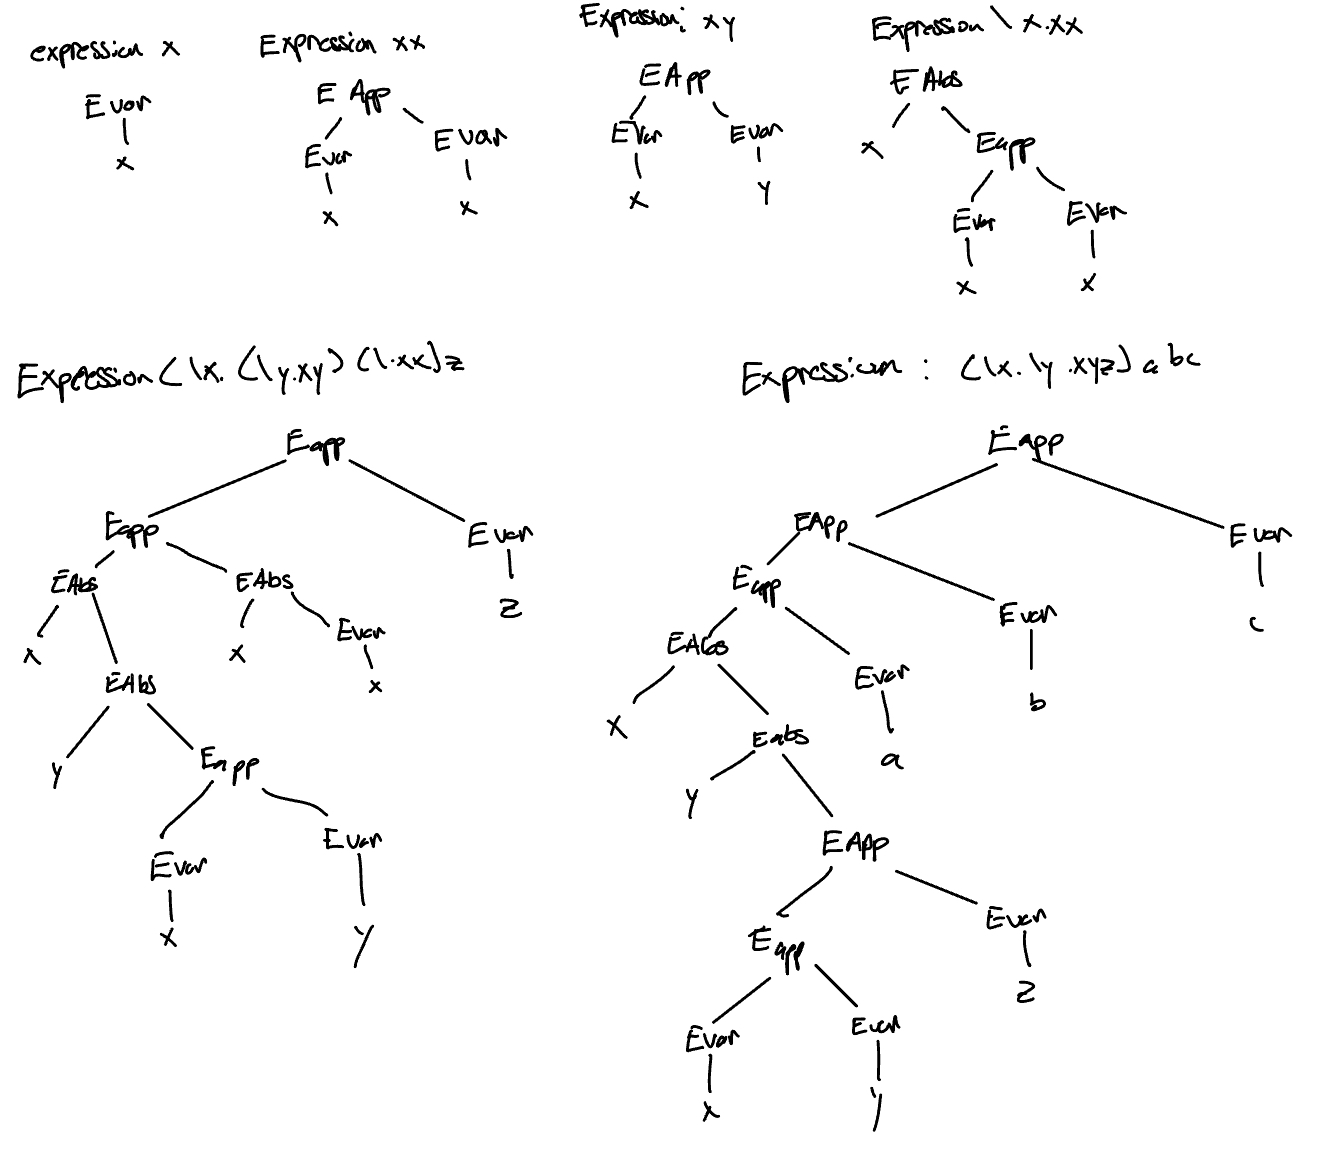 expression x
Evar
x
Expression xx
E App
Evar Evar
x x
Expression: xy
EApp
EVar Evar
x y
Expression \x.xx
EAbs
x Eapp
Evar EVar
x x
Expression (\x. (\y.xy) (\.xx)z
Eapp
Eapp Evar
EAbs EAbs z
x x Evar
x
EAbs
y Eapp
Evar Evar
x y
Expression : (\x.\y.xyz) abc
Eapp
EApp Evar
Eapp Evar c
EAbs Evar b
x Eabs a
y EApp
Eapp Evar
z
Evar Evar
x y